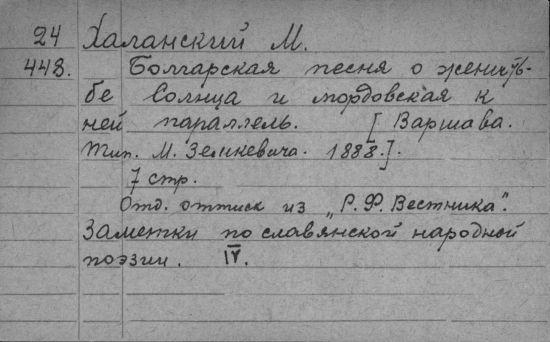 24 Халанский М.
448. Болгарская песня о женить-
бе Солнца и мордовская к
ней параллель. [Варшава.
Тип. М. Земкевича. 1888.].
7 стр.
Отд. оттиск из „Р. Ф. Вестника".
Заметки по славянской народной
поэзии. IV.